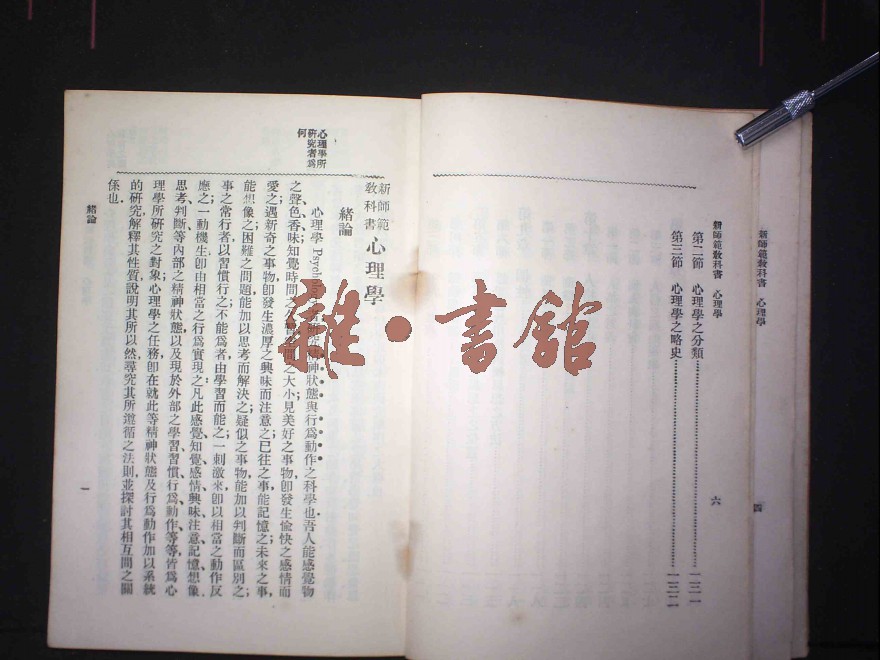 新師範教科書 心理學
四
新師範教科書 心理學
第二節 心理學之分類
第三節 心理學之略史
六
心理學所
研究者爲
何
新師範
教科書 心理學
緒論
心理學 Psychology 者研究精神狀態與行爲動作之科學也吾人能感覺物
之聲色香味知覺時間之久暫空間之大小見美好之事物卽發生愉快之感情而
愛之遇新奇之事物卽發生濃厚之興味而注意之已往之事能記憶之未來之事
能想像之困難之問題能加以思考而解決之疑似之事物能加以判斷而區別之
事之常行者以習慣行之不能爲者由學習而能之一刺激來卽以相當之動作反
應之一動機生卽由相當之行爲實現之凡此感覺知覺感情興味注意記憶想像
思考判斷等內部之精神狀態以及現於外部之學習習慣行爲動作等等皆爲心
理學所研究之對象心理學之任務卽在就此等精神狀態及行爲動作加以系統
的研究解釋其性質說明其所以然尋究其所遵循之法則並探討其相互間之關
係也
緒論
一
雜•書館